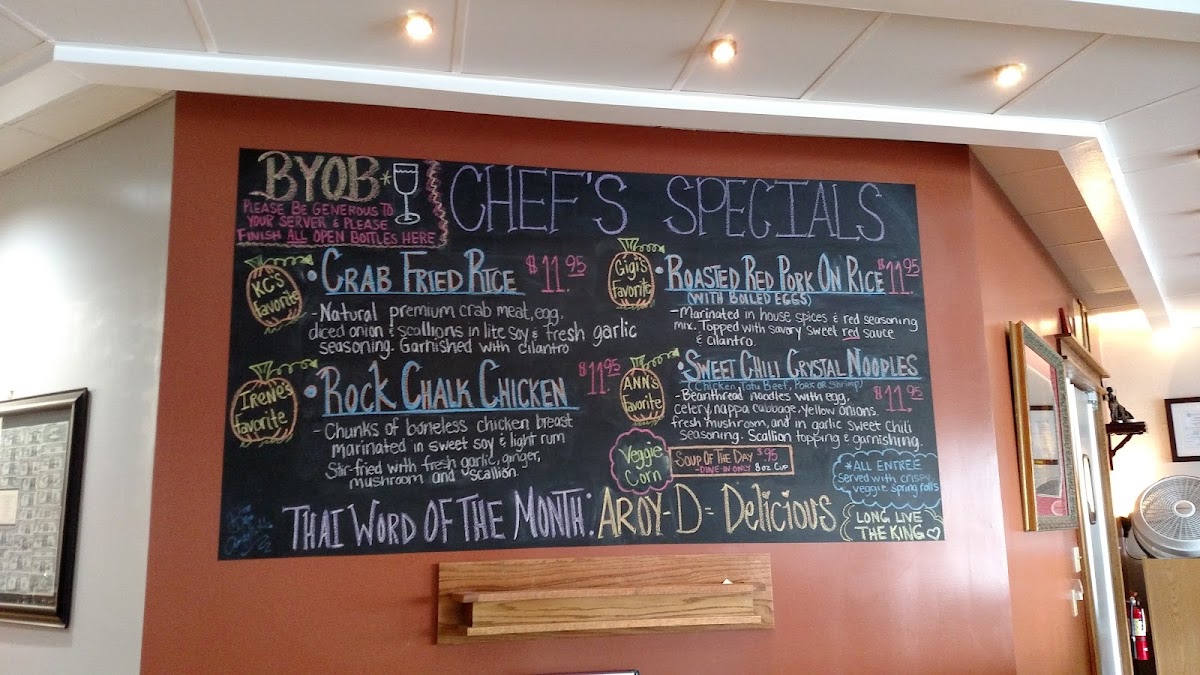 BYOB*
PLEASE BE GENEROUS TO
YOUR SERVER & PLEASE
FINISH ALL OPEN BOTTLES HERE
CHEF'S SPECIALS
KC's
Favorite
• CRAB FRIED RICE $11.95
- Natural premium crab meat, egg,
diced onion & scallions in lite soy & fresh garlic
seasoning. Garnished with cilantro
Gigi's
Favorite
• ROASTED RED PORK ON RICE $11.95
(WITH BOILED EGGS)
- Marinated in house spices & red seasoning
mix. Topped with savory sweet red sauce
& cilantro.
Irene's
Favorite
• ROCK CHALK CHICKEN $11.95
- Chunks of boneless chicken breast
marinated in sweet soy & light rum
Stir-fried with fresh garlic, ginger,
mushroom and scallion.
ANN's
Favorite
• SWEET CHILI CRYSTAL NOODLES
(Chicken, Tofu, Beef, PORK or Shrimp) $11.95
- Beanthread noodles with egg,
celery, nappa cabbage, yellow onions
fresh mushroom, and in garlic sweet chili
seasoning. Scallion topping & garnishing.
Veggie
Corn
SOUP OF THE DAY $.95
- DINE-IN ONLY 8 oz CUP
*ALL ENTREE
Served with crispy
veggie spring rolls
THAI WORD OF THE MONTH: AROY-D = Delicious
LONG LIVE
THE KING ♡